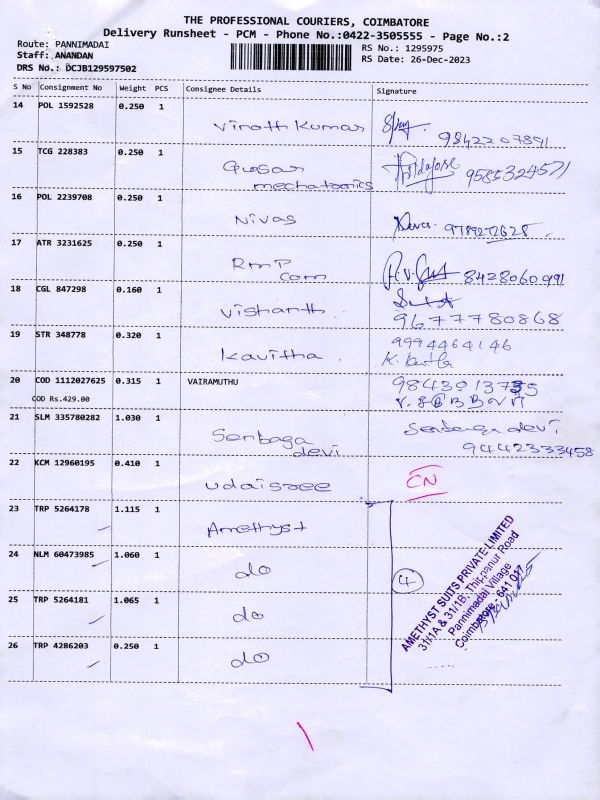 THE PROFESSIONAL COURIERS, COIMBATORE
Delivery Runsheet - PCM - Phone No.:0422-3505555 - Page No.:2
Route: PANNIMADAI
RS No.: 1295975
Staff: ANANDAN
RS Date: 26-Dec-2023
DRS No.: DCJB129597502
S No Consignment No Weight PCS Consignee Details Signature
14 POL 1592528 0.250 1
Vinoth Kumar 9842207891
15 TCG 228383 0.250 1
Quasar 9585324571
mechatronics
16 POL 2239708 0.250 1
Nivas 9789272628
17 ATR 3231625 0.250 1
RmP 8428060991
com
18 CGL 847298 0.160 1
Vishanth 9677780868
19 STR 348778 0.320 1 9994464146
Kavitha K.
20 COD 1112027625 0.315 1 VAIRAMUTHU
COD Rs.429.00
21 SLM 335780282 1.030 1
Senbaga Senbaga devi
devi 9442333458
22 KCM 12960195 0.410 1
Udaisree CN
23 TRP 5264178 1.115 1
Amethyst
24 NLM 60473985 1.060 1
do 4
25 TRP 5264181 1.065 1
do
26 TRP 4286203 0.250 1
do
AMETHYST SUITS PRIVATE LIMITED
31/1A & 31/1B, Thippanur Road
Pannimadai Village
Coimbatore - 641 017